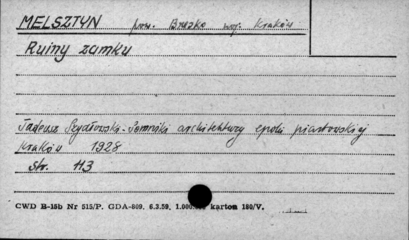 MELSZTYN pow. Brzesko woj. Kraków
Ruiny zamku
Tadeusz Szydłowski - Pomniki architektury epoki piastowskiej
Kraków 1928
str. 113
CWD B-15b Nr 515/P. GDA-809. 6.3.59. 1.000.000 karton 180/V.